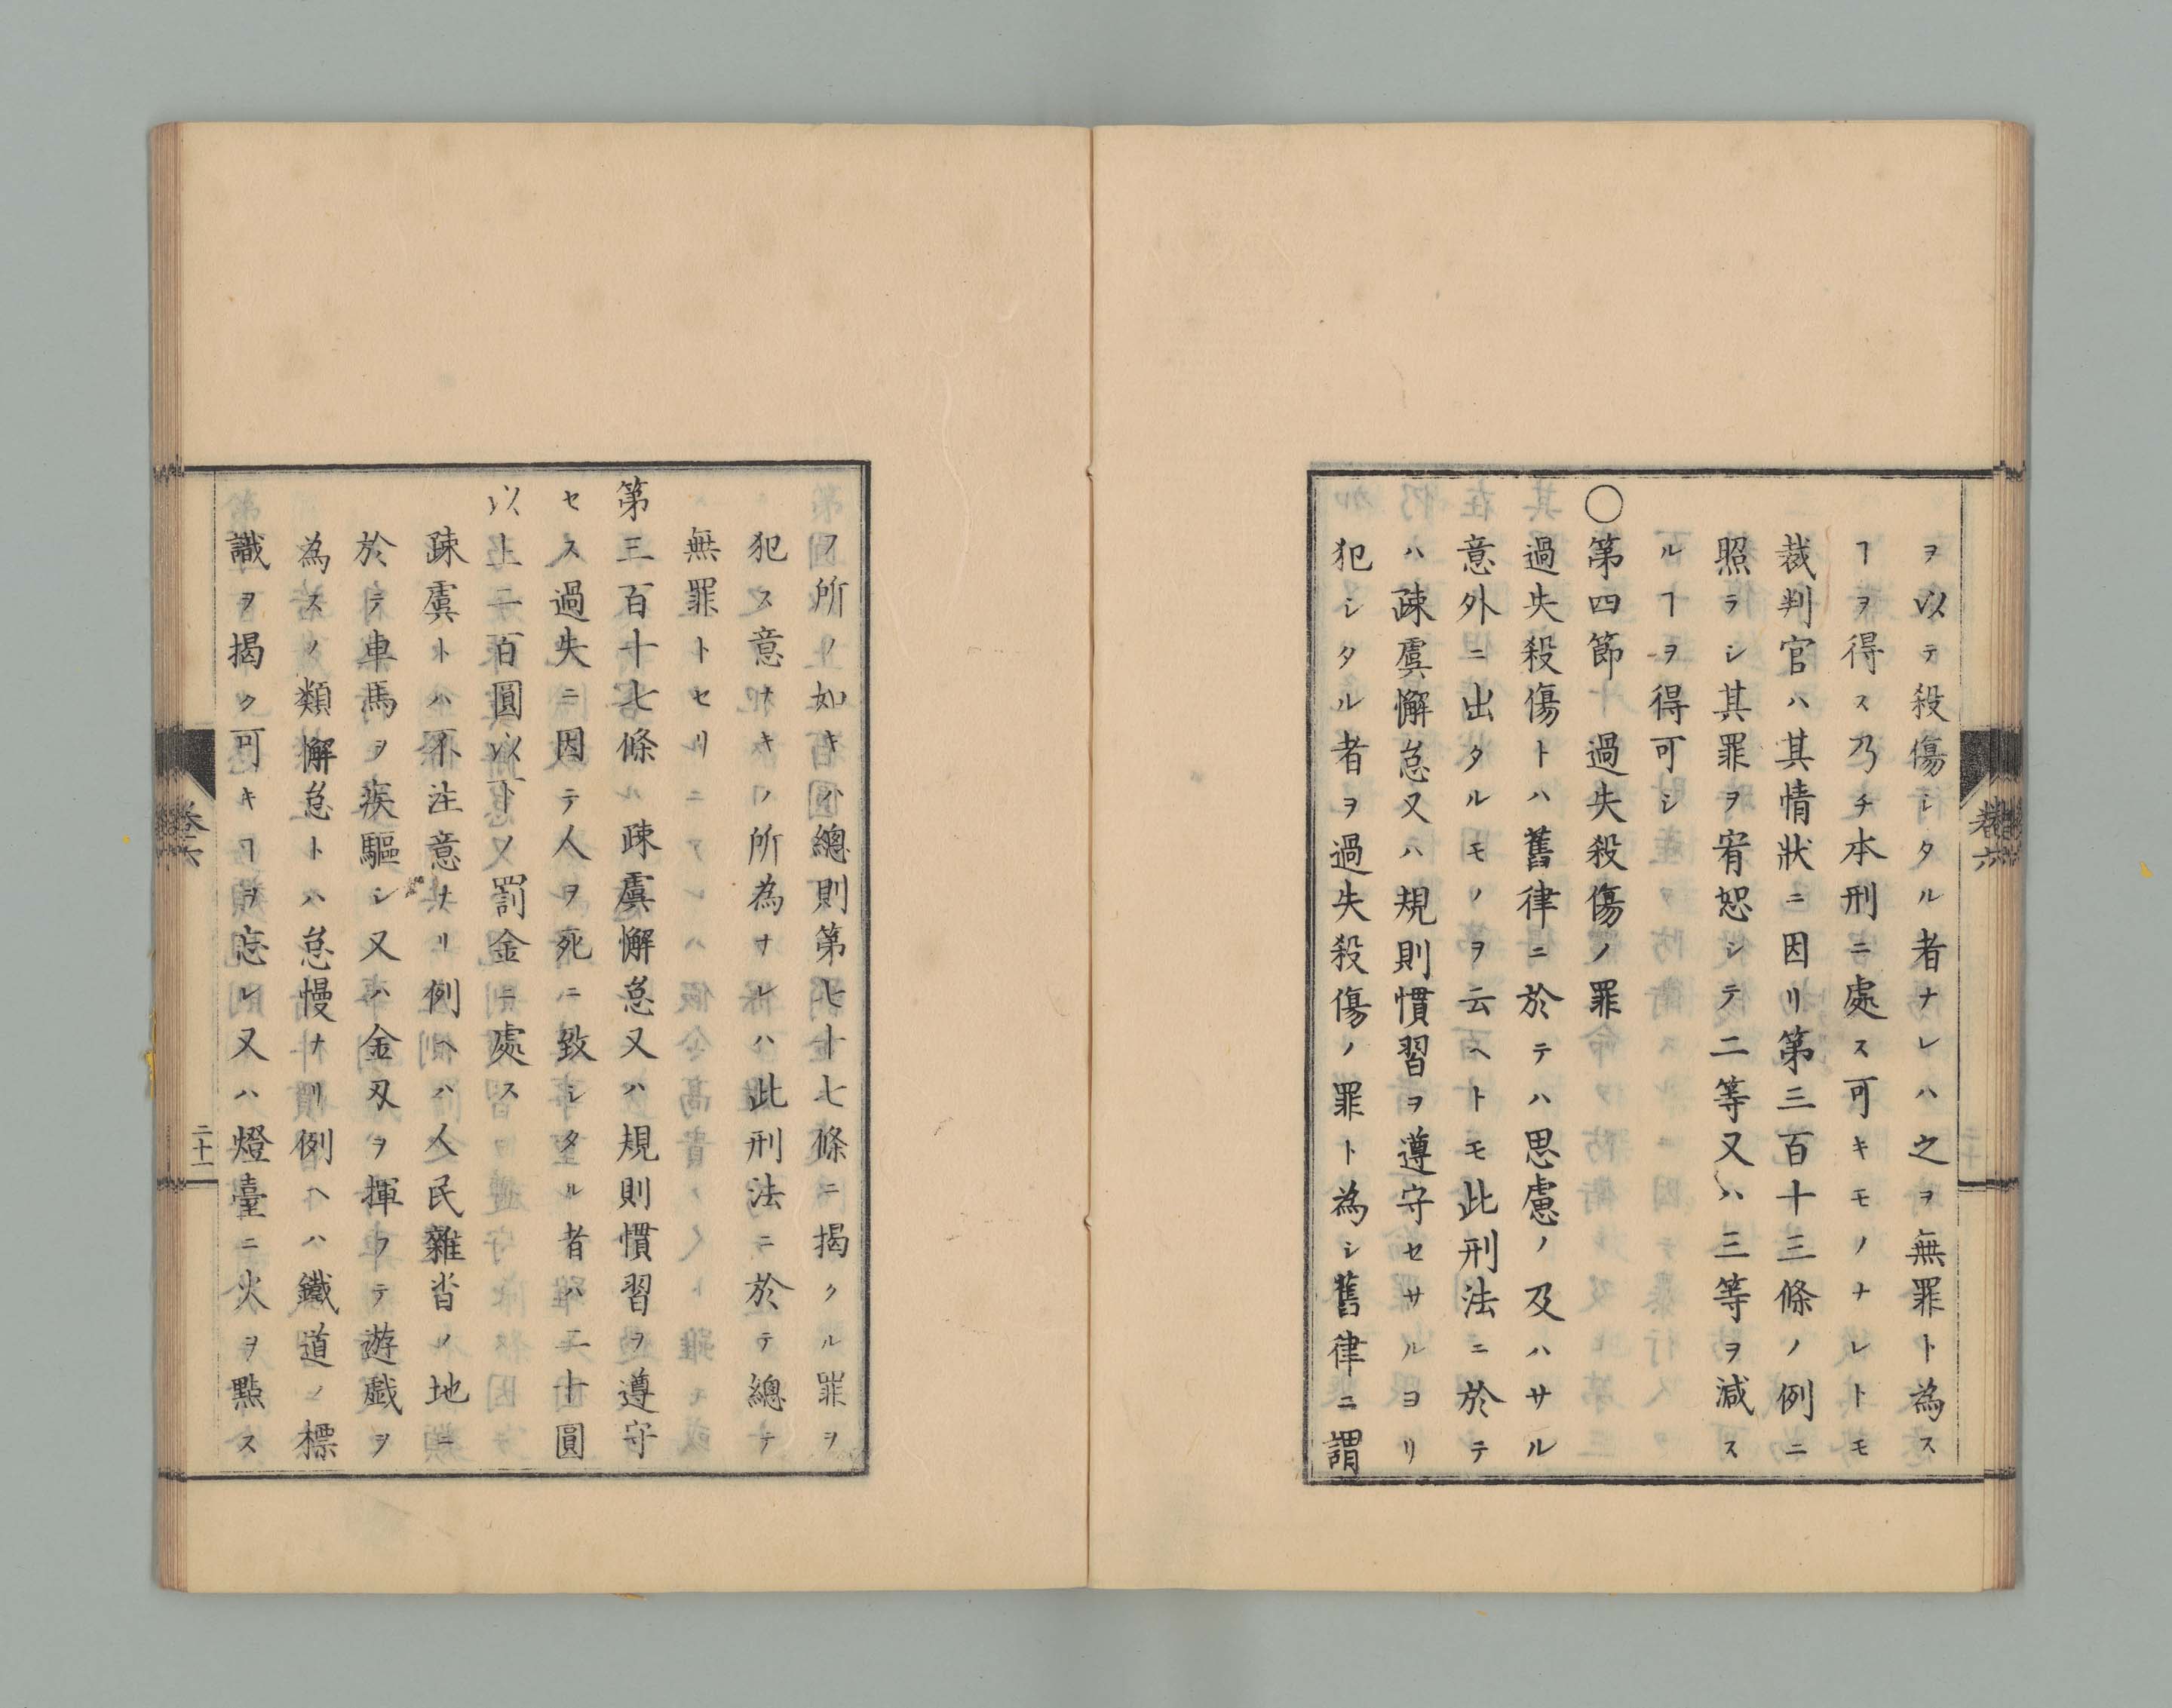 ヲ以テ殺傷シタル者ナレハ之ヲ無罪ト為ス
ヿヲ得ス乃チ本刑ニ處ス可キモノナレトモ
裁判官ハ其情狀ニ因リ第三百十三條ノ例ニ
照ラシ其罪ヲ宥恕シテ二等又ハ三等ヲ減ス
ルヿヲ得可シ
○第四節 過失殺傷ノ罪
過失殺傷トハ舊律ニ於テハ思慮ノ及ハサル
意外ニ出タルモノヲ云ヘトモ此刑法ニ於テ
ハ疎虞懈怠又ハ規則慣習ヲ遵守セサルヨリ
犯シタル者ヲ過失殺傷ノ罪ト為シ舊律ニ謂
卷六
フ所ノ如キハ總則第七十七條ニ揭クル罪ヲ
犯ス意ナキノ所為ナレハ此刑法ニ於テ總テ
無罪トセリ
第三百十七條 疎虞懈怠又ハ規則慣習ヲ遵守
セス過失ニ因テ人ヲ死ニ致シタル者ハ二十圓
以上二百圓以下ノ罰金ニ處ス
疎虞トハ不注意ナリ例ヘハ人民雜沓ノ地ニ
於テ車馬ヲ疾驅シ又ハ金刄ヲ揮フテ遊戲ヲ
為スノ類懈怠トハ怠慢ナリ例ヘハ鐵道ノ標
識ヲ揭ク可キヿヲ忘レ又ハ燈臺ニ火ヲ點ス
卷六
二十一